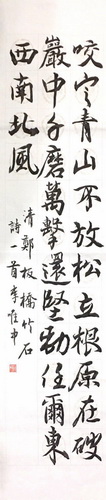 咬定青山不放松立根原在破
巖中千磨萬擊還堅勁任爾東
西南北風
清鄭板橋竹石
詩一首李